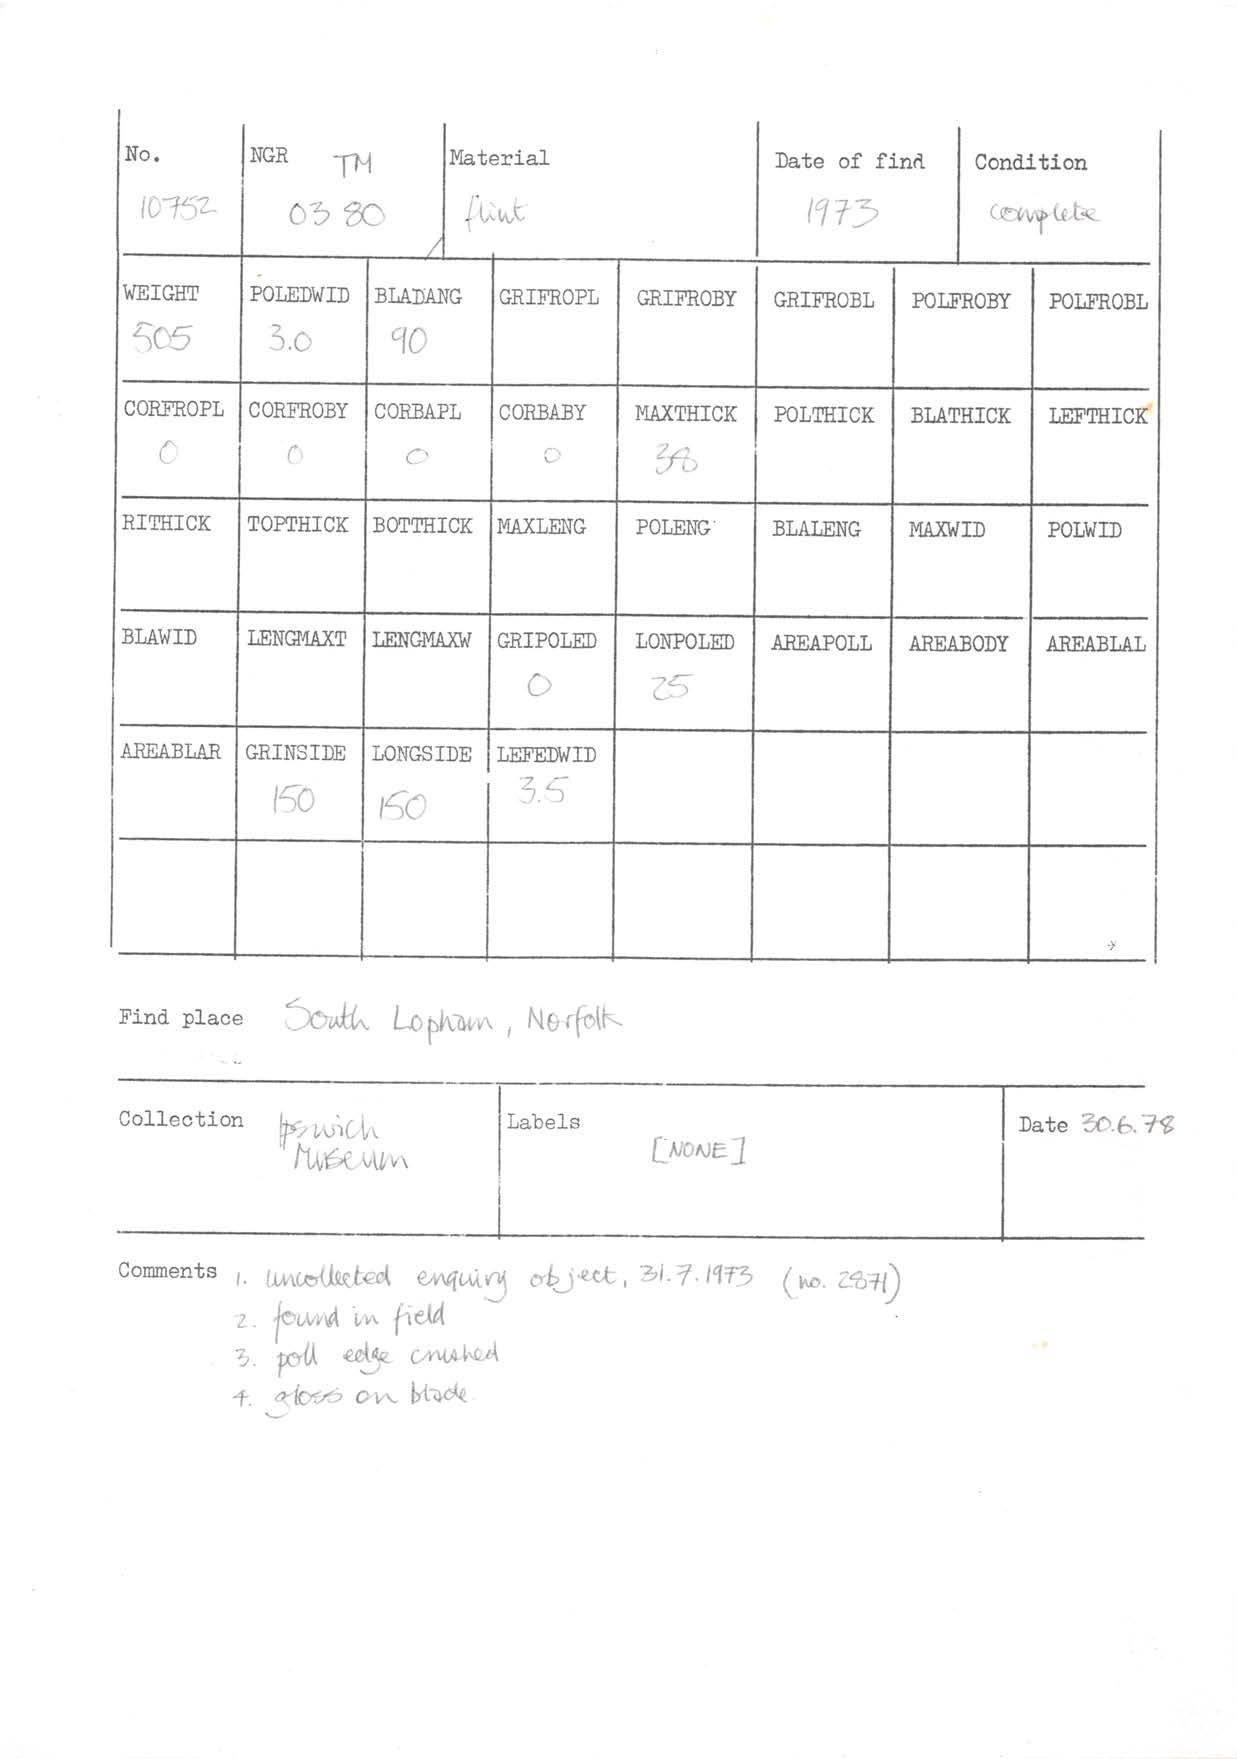 No. NGR TM Material Date of find Condition
10752 03 80 flint 1973 complete
WEIGHT POLEDWID BLADANG GRIFROPL GRIFROBY GRIFROBL POLFROBY POLFROBL
505 3.0 90
CORFROPL CORFROBY CORBAPL CORBABY MAXTHICK POLTHICK BLATHICK LEFTHICK
0 0 0 0 38
RITHICK TOPTHICK BOTTHICK MAXLENG POLENG BLALENG MAXWID POLWID
BLAWID LENGMAXT LENGMAXW GRIPOLED LONPOLED AREAPOLL AREABODY AREABLAL
0 25
AREABLAR GRINSIDE LONGSIDE LEFEDWID
150 150 3.5
Find place South Lopham, Norfolk
Collection Ipswich Labels Date 30.6.78
Museum [NONE]
Comments 1. uncollected enquiry object, 31.7.1973 (no. 2871)
2. found in field
3. poll edge crushed
4. gloss on blade.